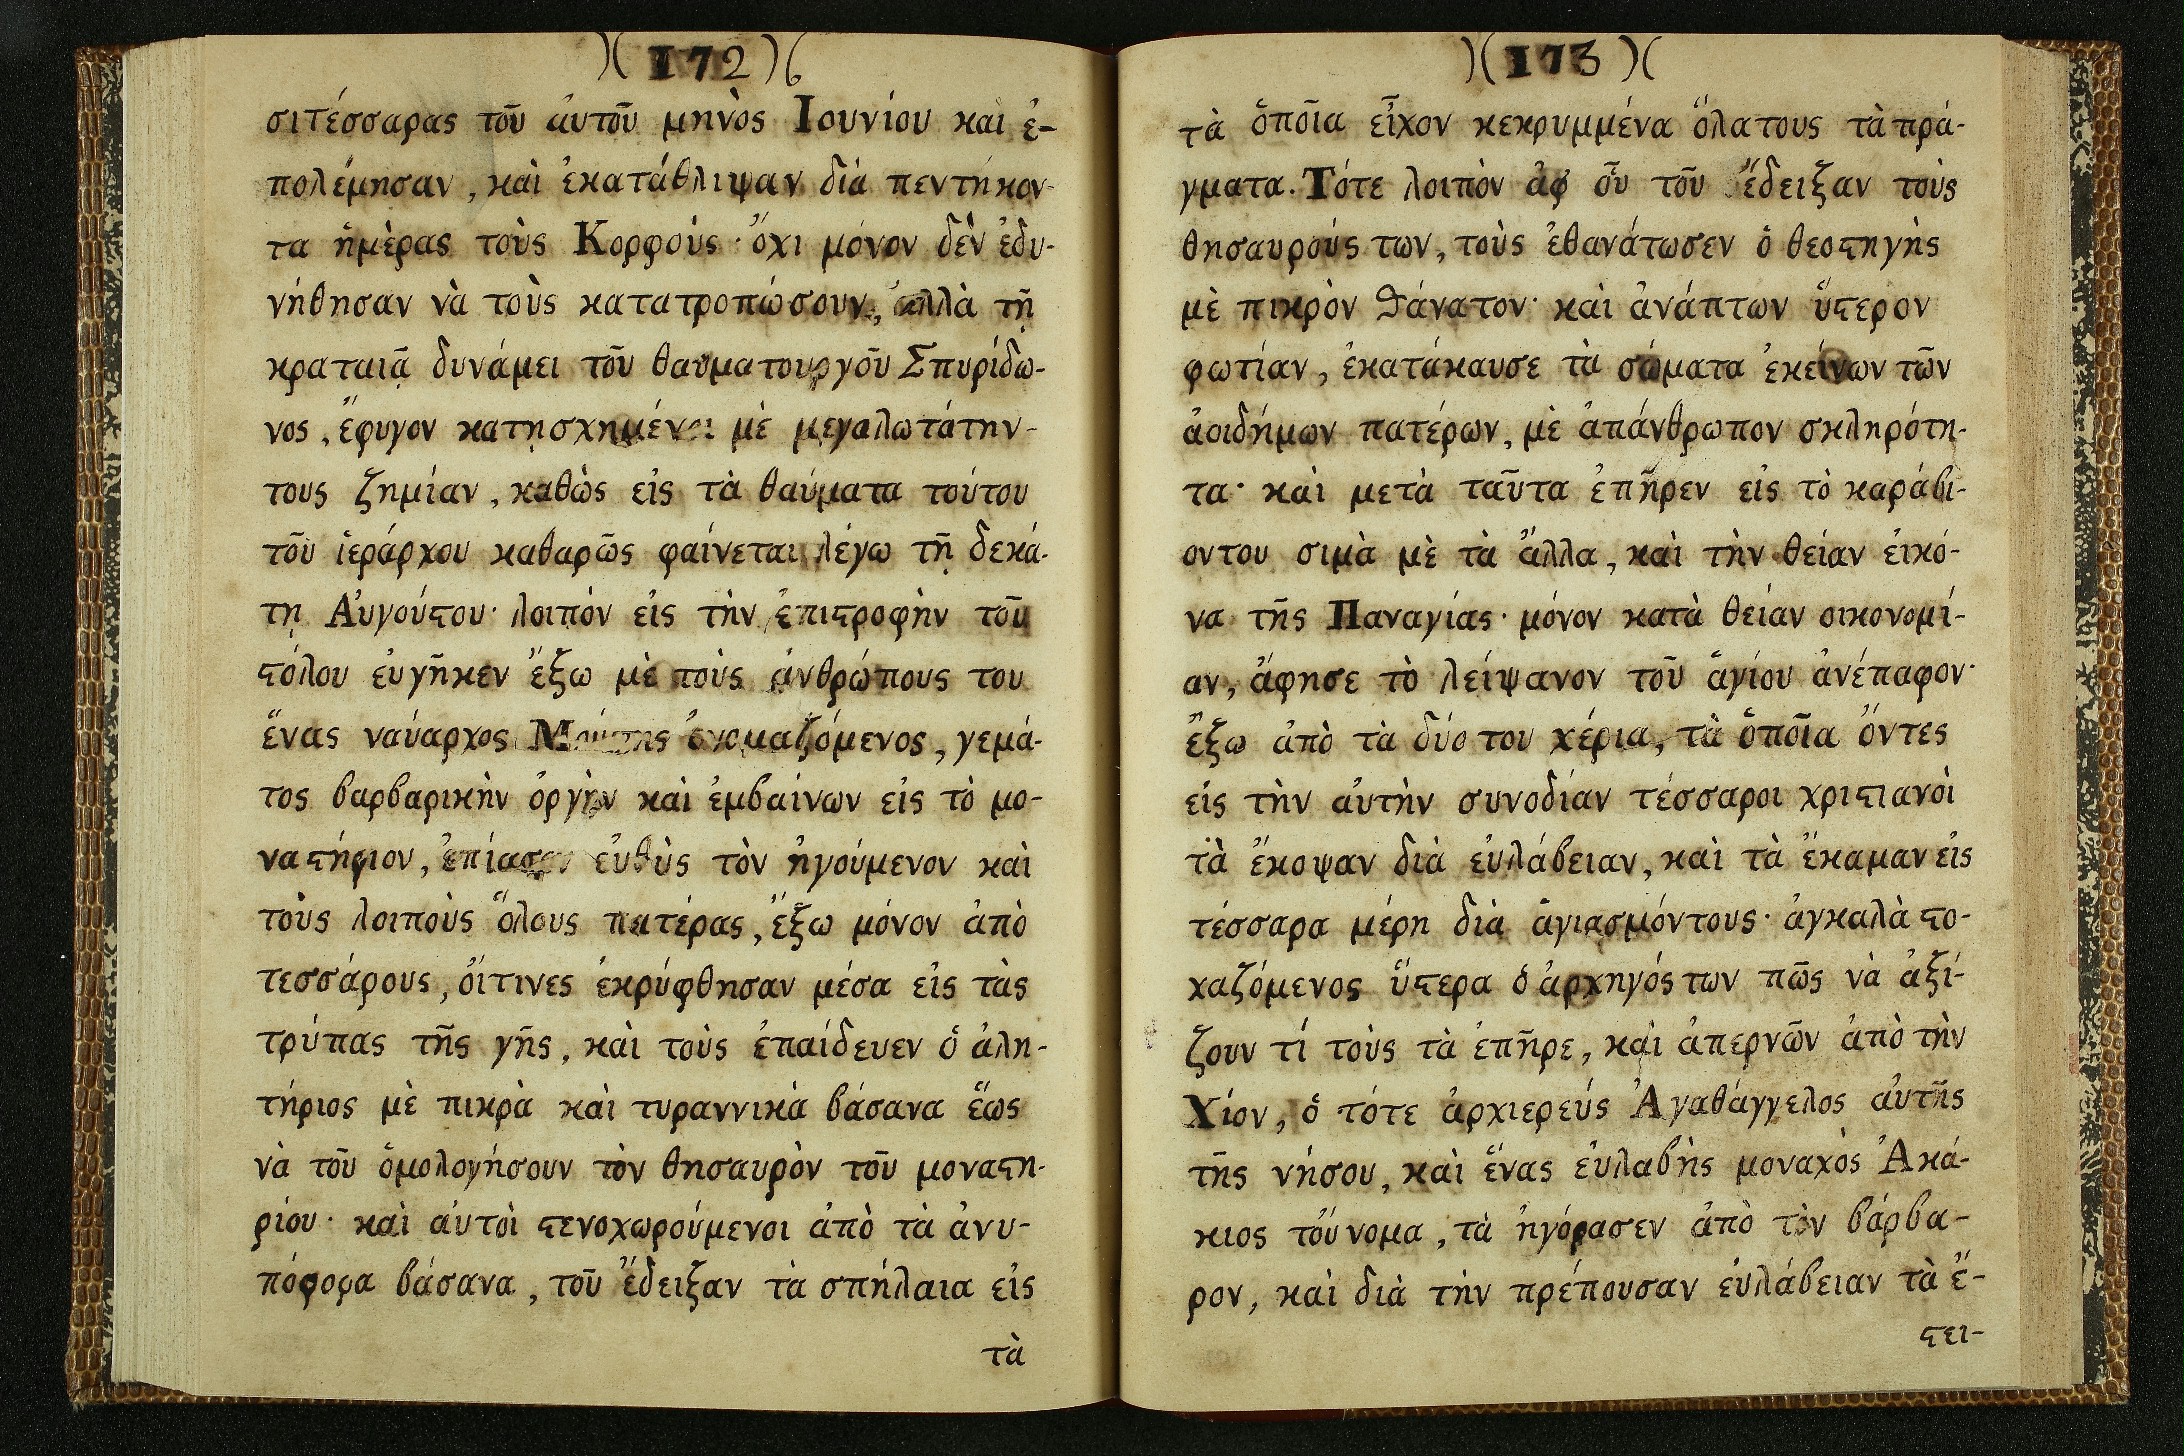 )( 172 )(
σιτέσσαρας τοῦ αὐτοῦ μηνὸς Ιουνίου καὶ ἐ-
πολέμησαν, καὶ ἐκατάθλιψαν διὰ πεντήκον-
τα ἡμέρας τοὺς Κορφούς· ὄχι μόνον δὲν ἐδυ-
νήθησαν νὰ τοὺς κατατροπώσουν, ἀλλὰ τῇ
κραταιᾷ δυνάμει τοῦ θαυματουργοῦ Σπυρίδω-
νος, ἔφυγον κατῃσχημένοι μὲ μεγαλωτάτην-
τους ζημίαν, καθὼς εἰς τὰ θαύματα τούτου
τοῦ ἱεράρχου καθαρῶς φαίνεται λέγω τῇ δεκά-
τῃ Αὐγούϛου· λοιπὸν εἰς τὴν ἐπιϛροφὴν τοῦ
ϛόλου εὐγῆκεν ἔξω μὲ τοὺς ἀνθρώπους του
ἕνας ναύαρχος ὀνομαζόμενος, γεμά-
τος βαρβαρικὴν ὀργὴν καὶ ἐμβαίνων εἰς τὸ μο-
ναϛήριον, ἐπίασεν εὐθὺς τὸν ἡγούμενον καὶ
τοὺς λοιποὺς ὅλους πατέρας, ἔξω μόνον ἀπὸ
τεσσάρους, οἵτινες ἐκρύφθησαν μέσα εἰς τὰς
τρύπας τῆς γῆς, καὶ τοὺς ἐπαίδευεν ὁ ἀλη-
τήριος μὲ πικρὰ καὶ τυραννικὰ βάσανα ἕως
νὰ τοῦ ὁμολογήσουν τὸν θησαυρὸν τοῦ μοναϛη-
ρίου· καὶ αὐτοὶ ϛενοχωρούμενοι ἀπὸ τὰ ἀνυ-
πόφορα βάσανα, τοῦ ἔδειξαν τὰ σπήλαια εἰς
τὰ
)( 173 )(
τὰ ὁποῖα εἶχον κεκρυμμένα ὅλατους τὰ πρά-
γματα. Τότε λοιπὸν ἀφ οὗ τοῦ ἔδειξαν τοὺς
θησαυρούς των, τοὺς ἐθανάτωσεν ὁ θεοϛηγὴς
μὲ πικρὸν θάνατον· καὶ ἀνάπτων ὕϛερον
φωτίαν, ἐκατάκαυσε τὰ σώματα ἐκείνων τῶν
ἀοιδήμων πατέρων, μὲ ἀπάνθρωπον σκληρότη-
τα· καὶ μετὰ ταῦτα ἐπῆρεν εἰς τὸ καράβι-
οντου σιμὰ μὲ τὰ ἄλλα, καὶ τὴν θείαν εἰκό-
να τῆς Παναγίας· μόνον κατὰ θείαν οικονομί-
αν, ἄφησε τὸ λείψανον τοῦ ἁγίου ἀνέπαφον·
ἔξω ἀπὸ τὰ δύο του χέρια, τὰ ὁποῖα ὄντες
εἰς τὴν αὐτὴν συνοδίαν τέσσαροι χριϛιανοὶ
τὰ ἔκοψαν διὰ εὐλάβειαν, καὶ τὰ ἔκαμαν εἰς
τέσσαρα μέρη διὰ ἁγιασμόντους· ἀγκαλὰ ϛο-
χαζόμενος ὕϛερα ὁ ἀρχηγός των πῶς νὰ ἀξί-
ζουν τί τοὺς τὰ ἐπῆρε, καὶ ἀπερνῶν ἀπὸ τὴν
Χίον, ὁ τότε ἀρχιερεύς Ἀγαθάγγελος αὐτῆς
τῆς νήσου, καὶ ἕνας εὐλαβὴς μοναχὸς Ἀκά-
κιος τοὔνομα, τὰ ἠγόρασεν ἀπὸ τὸν βάρβα-
ρον, καὶ διὰ τὴν πρέπουσαν εὐλάβειαν τὰ ἔ-
ϛει-